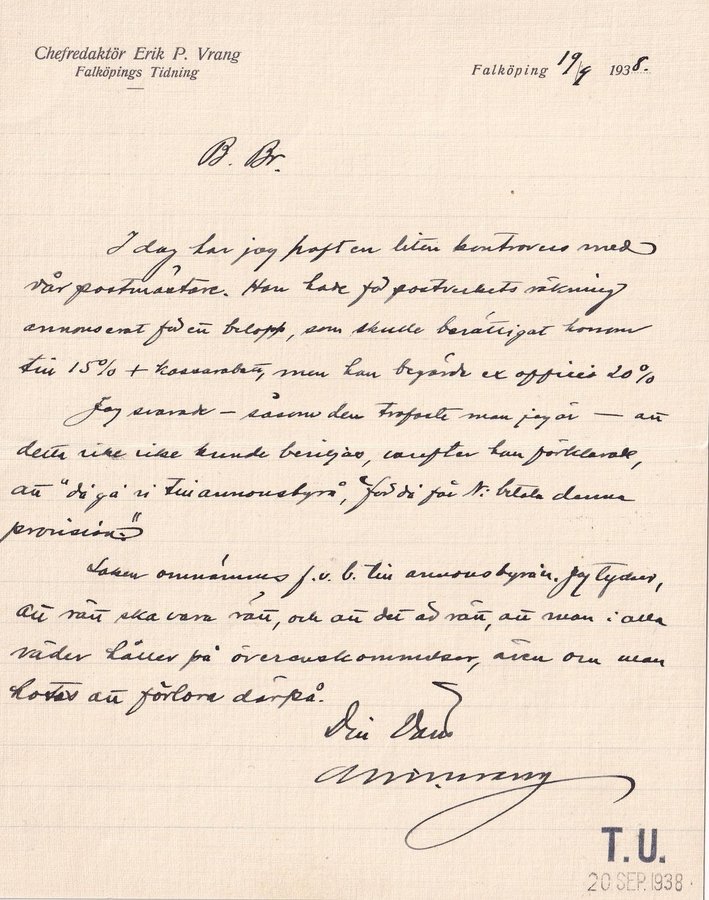 Chefredaktör Erik P. Vrang
Falköpings Tidning
Falköping 19/9 1938.
B. Br.
I dag har jag haft en liten kontrovers med
vår postmästare. Han hade för postverkets räkning
annonserat för ett belopp, som skulle berättigat honom
till 15% + kassarabatt, men han begärde ex officio 20%
Jag svarade – såsom den trofaste man jag är – att
detta icke kunde beviljas, varefter han förklarade,
att "då gå vi till annonsbyrå, för då får Ni betala denna
provision."
Saken omnämnes f. v. b. till annonsbyrån. Jag tycker,
att rätt ska vara rätt, och att det är rätt, att man i alla
väder håller på överenskommelser, även om man
hotas att förlora därpå.
Din Vän
T.U.
20 SEP. 1938